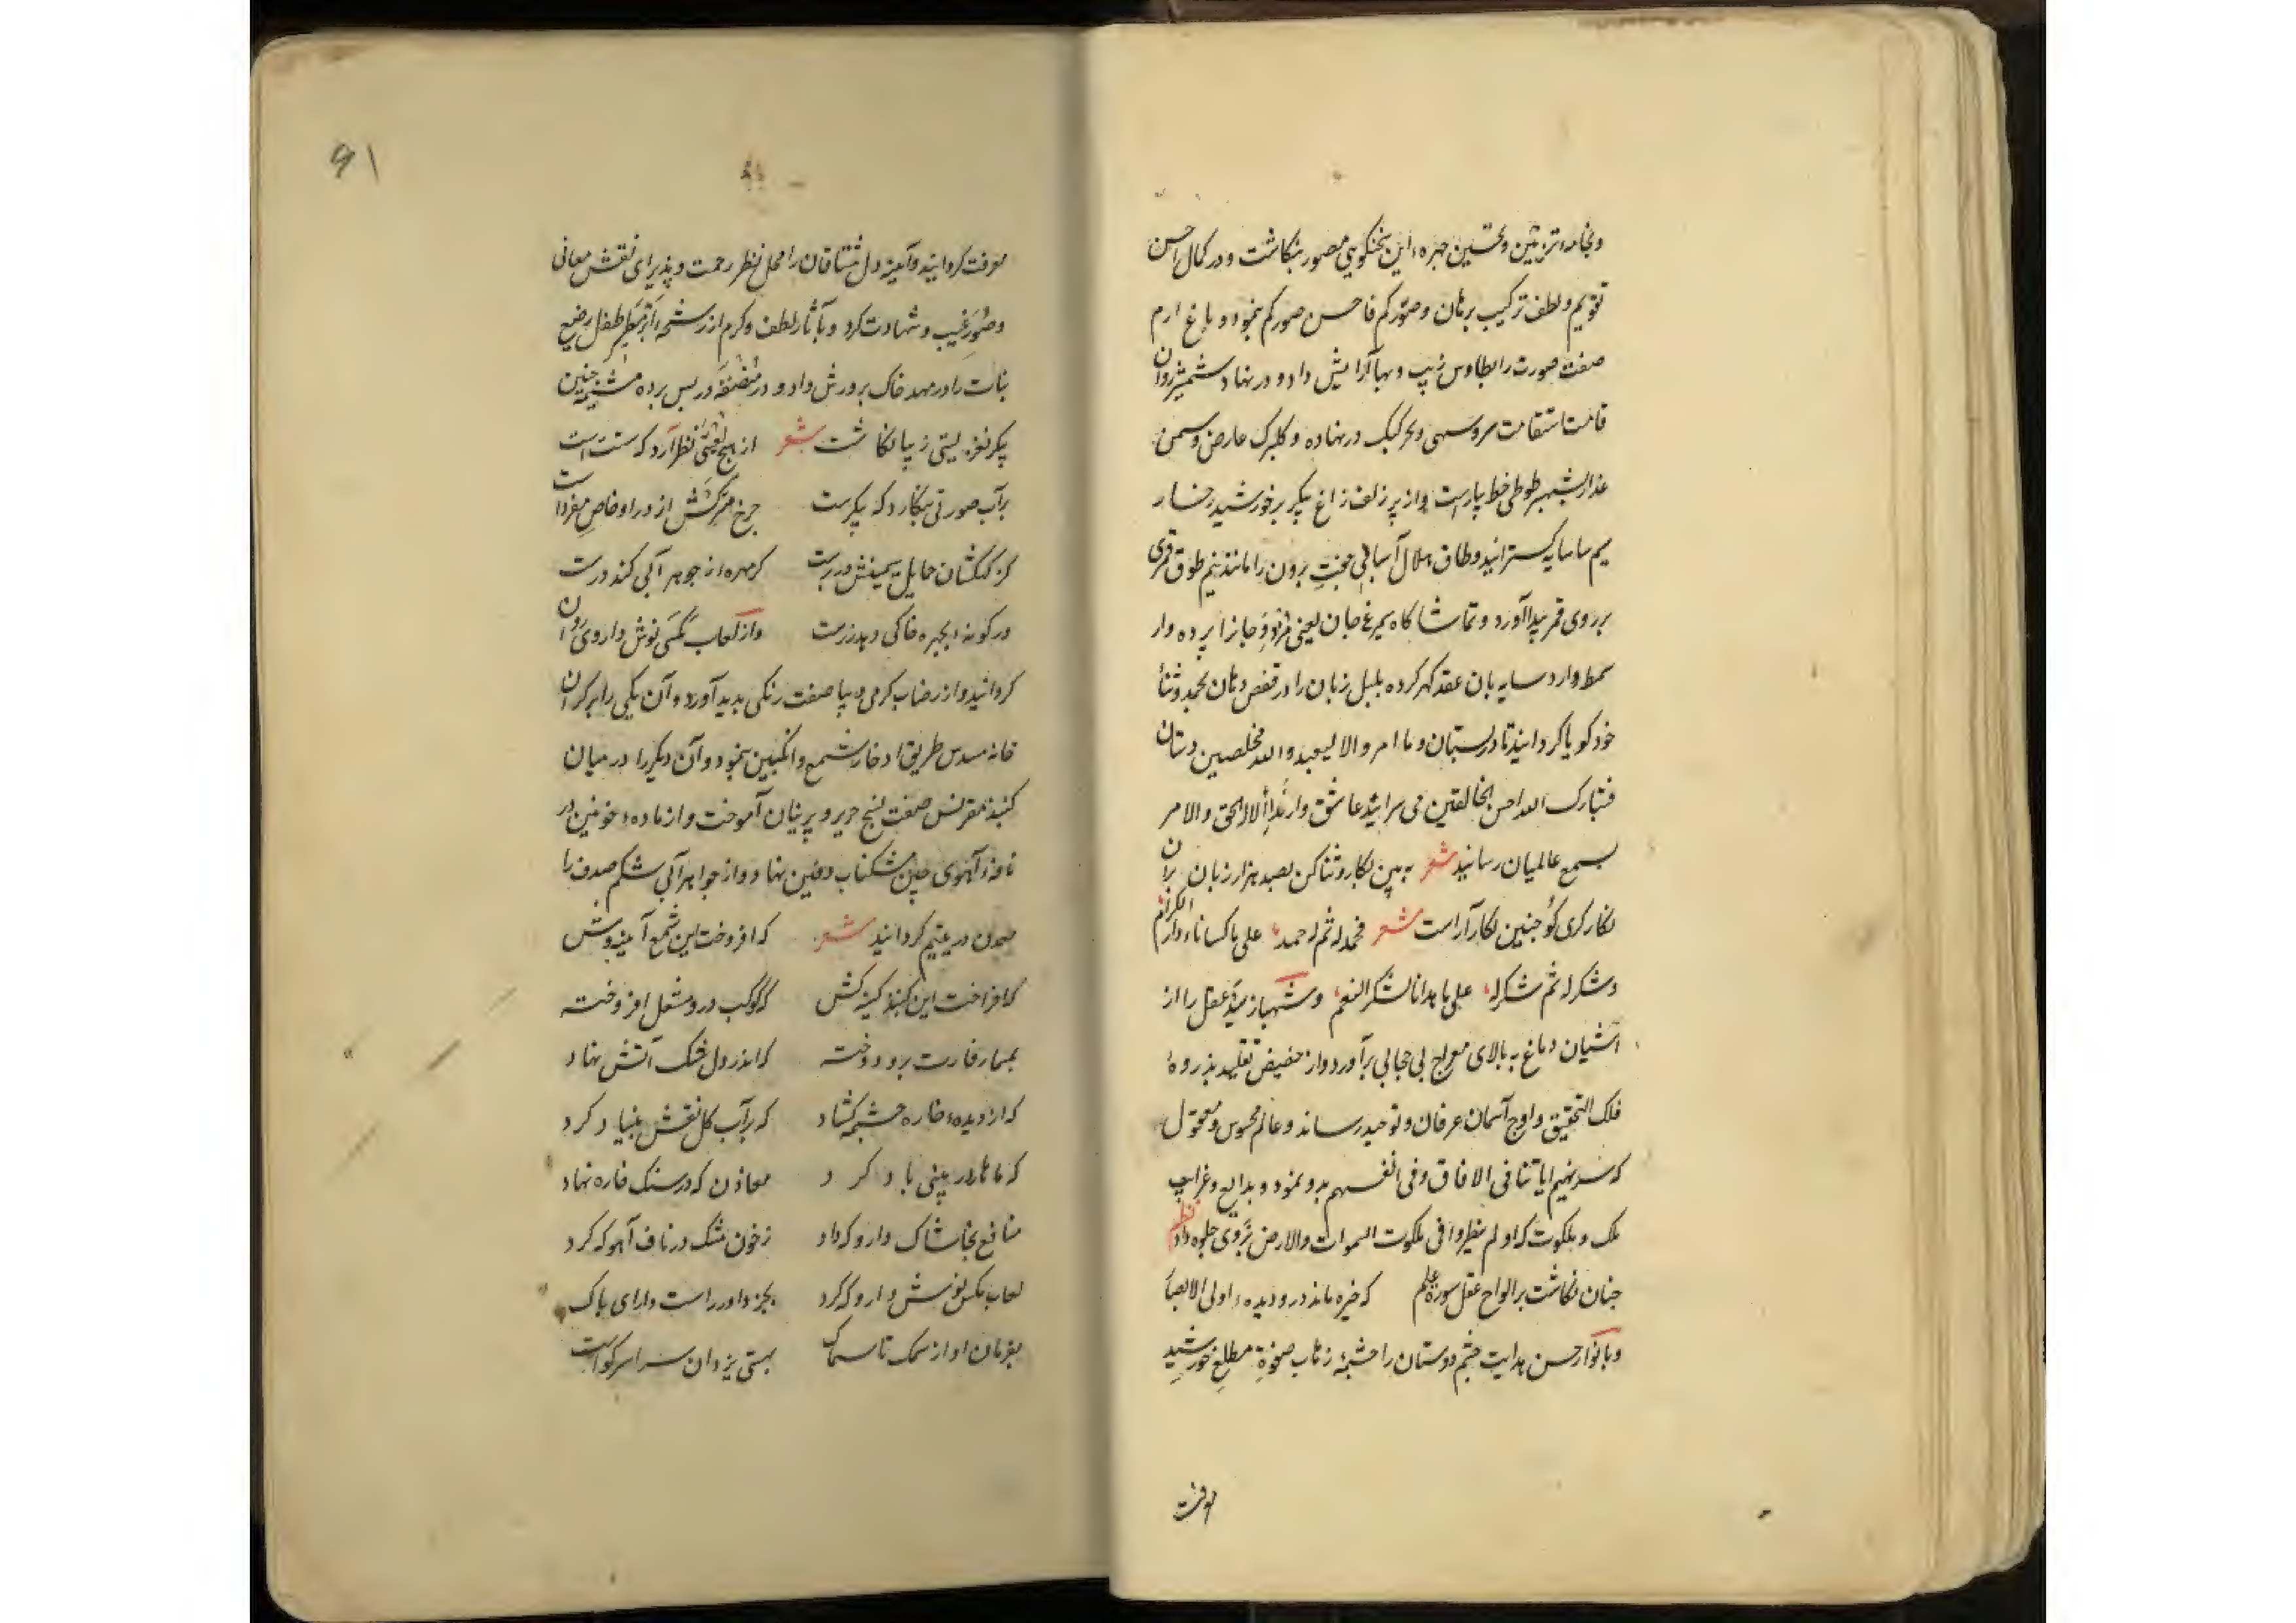 وبخامهٔ تزیین وتحسین چهرهٔ این بخنکوهی مصور بنکاشت ودر کمال احسن
تقویم ولطف ترکیب برهان وصورکم فاحسن صورکم بنمود وباغ ارم
صفت صورت رابطاوس زیب وبها آرایش داد ودر نهاد شمشیر روان
قامت استقامت سروسهی وتحر کبک درنهاده وکلبرک عارض وسمن
عذار بشهپر طوطی خط پیاراست واز پر زلف زاغ پیکر برخورشید رخسار
سیم سا سایه کسترانید وطاق هلال آسای جفت برون را مانند نیم طوق قمری
برروی قمر پیدا آورد وتماشاکاه سیمرغ جان یعنی را پرده وار
سمط وارد سایه بان عقد کهر کرده بلبل زبان را در قفص دهان بحمد وثنأ
خود کویا کردانید تا در بستان وما امروا الا لیعبدوا الله مخلصین دستان
فتبارک الله احسن الخالقین می سراید عاشق وار ندأ الاله الحق والامر
بسمع عالمیان رسانید شعر به بین نکار وثنا کن بصد هزار زبان بران
نکارکری کو چنین نکار آراست شعر فحمد له ثم له حمد علی ما کسانا رداء الکرم
وشکر له ثم شکر له علی ما هدانا لشکر النعم وشهباز عقل را از
آشیان دماغ به بالای معراج بی حجابی برآورد واز حضیض تقلید بذروهٔ
فلک التحقیق واوج آسمان عرفان وتوحید رساند وعالم محسوس ومعقول
که سنریهم ایاتنا فی الافاق وفی انفسهم بدو نمود وبدایع وغرایب
ملک وملکوت که اولم ینظروا فی ملکوت السموات والارض بروی جلوه داد نظر
چنان نکاشت برالواح عقل سورة علم که خیره ماند درو دیدهٔ اولی الابصا
وبانوار حسن هدایت چشم دوستان را چشمهٔ زهاب صفوة مطلع خورشید
معرفت
۹۱
معرفت کردانید وآینهٔ دل مشتاقان را محل نظر رحمت وپذیرای نقش معانی
وصور غیب وشهادت کرد وبآثار لطف وکرم از رشحهٔ طفل رضیع
نبات را در مهد خاک پرورش داد ودر مضغه در پس پرده مشیمه جنین
پیکر نغز لعبتی زیبا نکاشت شعر از هیچ لعبتی بنظر آرد که ست است
برآب صورتی بنکارد که پیکرست چرخ از در او خاص مفردات
کز کهکشان حمایل سیمینش دربرست کر مهره از جوهر آبی کند درست
در کونهٔ بچهره خاکی دهد زرست واز لعاب مکسی نوش داروی روان
کردانید واز رضاب کرمی دیبا صفت رنکی پدید آورد وآن یکی را بر کران
خانه مسدس طریق ادخار شمع وانکبین بنمود وآن دیکر را در میان
کنبذ مقرنس صفت نسج حریر وپرنیان آموخت واز مادهٔ خونین در
نافهٔ آهوی چین مشکناب دفین نهاد واز جواهر آبی شکم صدف را
معدن در یتیم کردانید شعر که افروخت این شمع آینه وش
که افراخت این کنبذ کینه کش که کوکب درو مشعل افروخته
بمسمار قدرت برو دوخته که اندر دل سنک آتش نهاد
که از دیدهٔ خاره چشمه کشاد که برآب کل نقش بنیاد کرد
که ماهار در بینی باد کرد معادن که در سنک خاره نهاد
منافع بخاشاک دارو که داد زخون مشک در ناف آهو که کرد
لعاب مکس نوش دارو که کرد بجز داور راست دارای پاک
بفرمان او از سمک تا سماک بهستی یزدان سراسر کواست